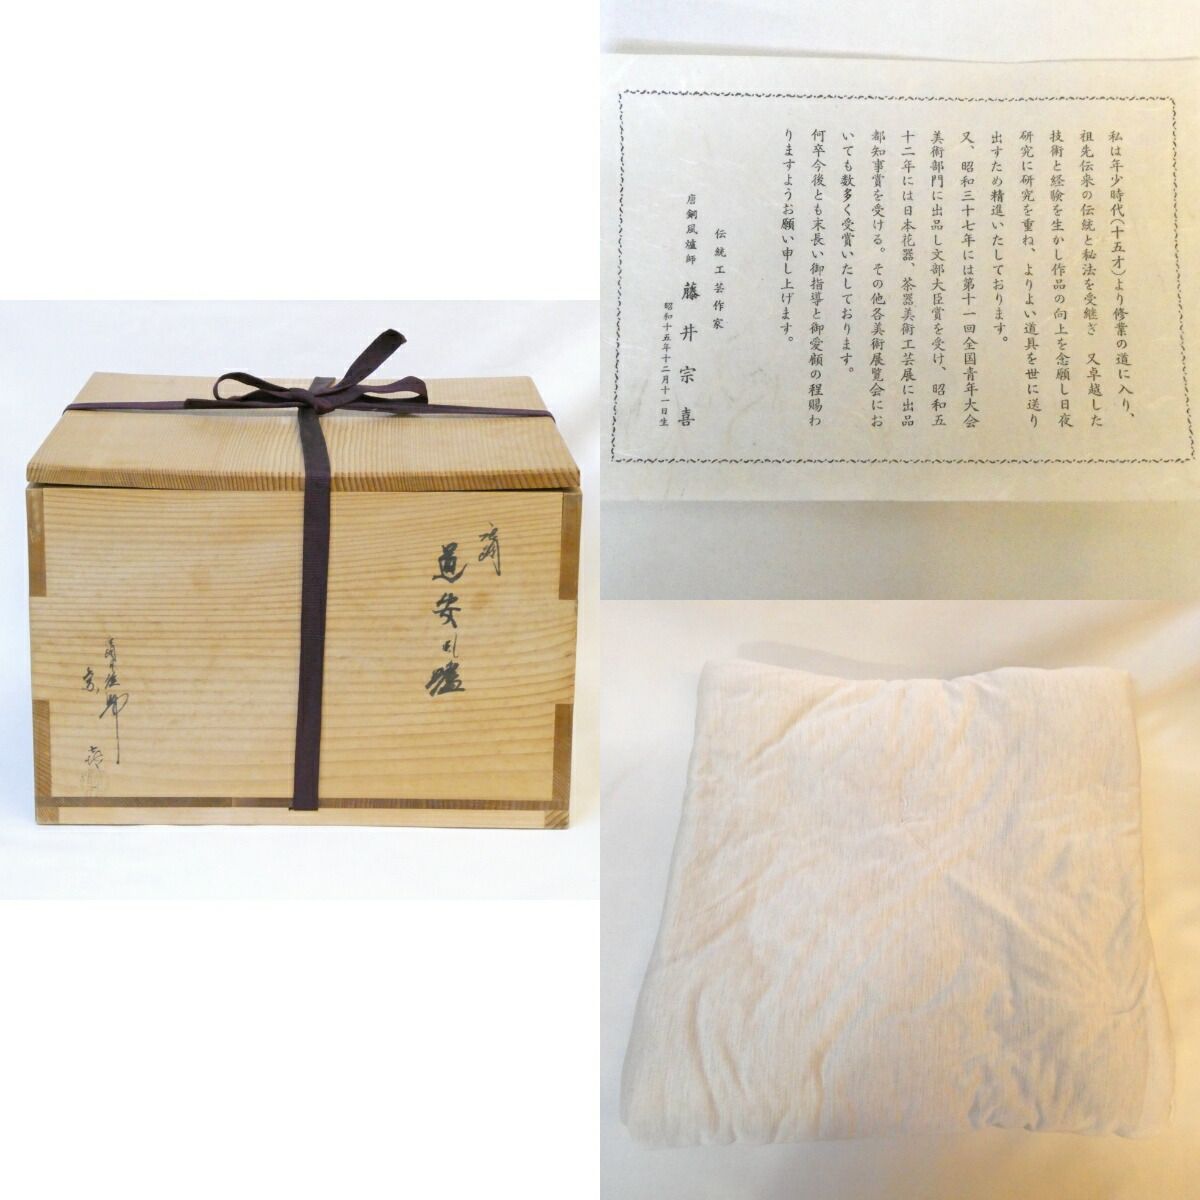 私は年少時代（十五才）より修業の道に入り、
祖先伝来の伝統と秘法を受継ぎ　又卓越した
技術と経験を生かし作品の向上を念願し日夜
研究に研究を重ね、よりよい道具を世に送り
出すため精進いたしております。
又、昭和三十七年には第十一回全国青年大会
美術部門に出品し文部大臣賞を受け、昭和五
十二年には日本花器、茶器美術工芸展に出品
都知事賞を受ける。その他各美術展覧会にお
いても数多く受賞いたしております。
何卒今後とも末長い御指導と御愛顧の程賜わ
りますようお願い申し上げます。
伝統工芸作家
唐銅風爐師　藤井宗喜
昭和十五年十二月十一日生
道安風爐